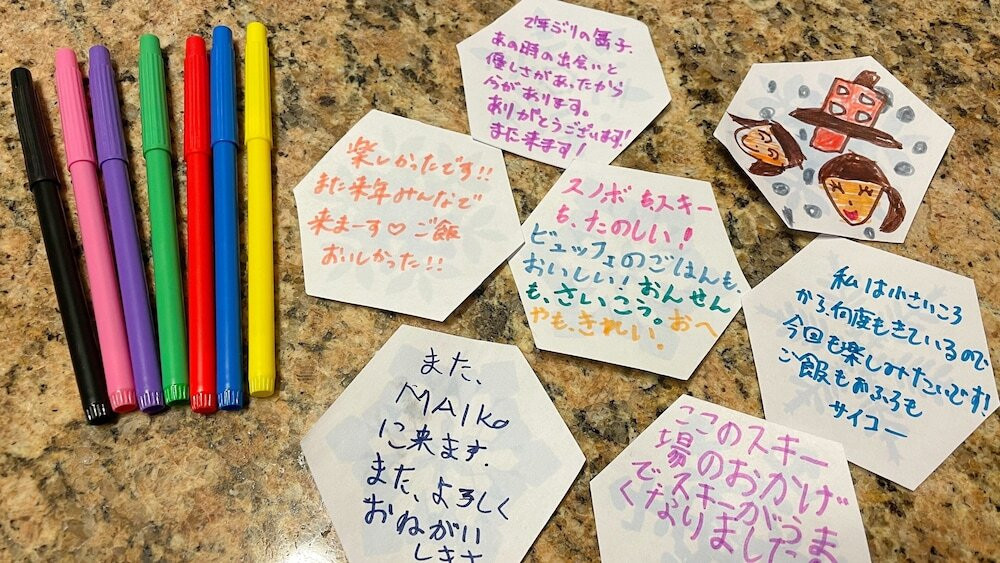 2年ぶりの舞子、
あの時の出会いと
優しさがあったから
今があります。
ありがとうございます!
また来ます!
楽しかったです!!
また来年みんなで
来まーす♡ご飯
おいしかった!!
スノボもスキー
も、たのしい!
ビュッフェのごはんも、
おいしい!おんせん
も、さいこう。おへ
やも、きれい。
私は小さいころ
から何度もきているので
今回も楽しみたいです!
ご飯もおふろも
サイコー
また、
MAIKO
に来ます.
また、よろしく
おねがい
ここのスキー
場のおかげ
でスキーがうま
くなりました